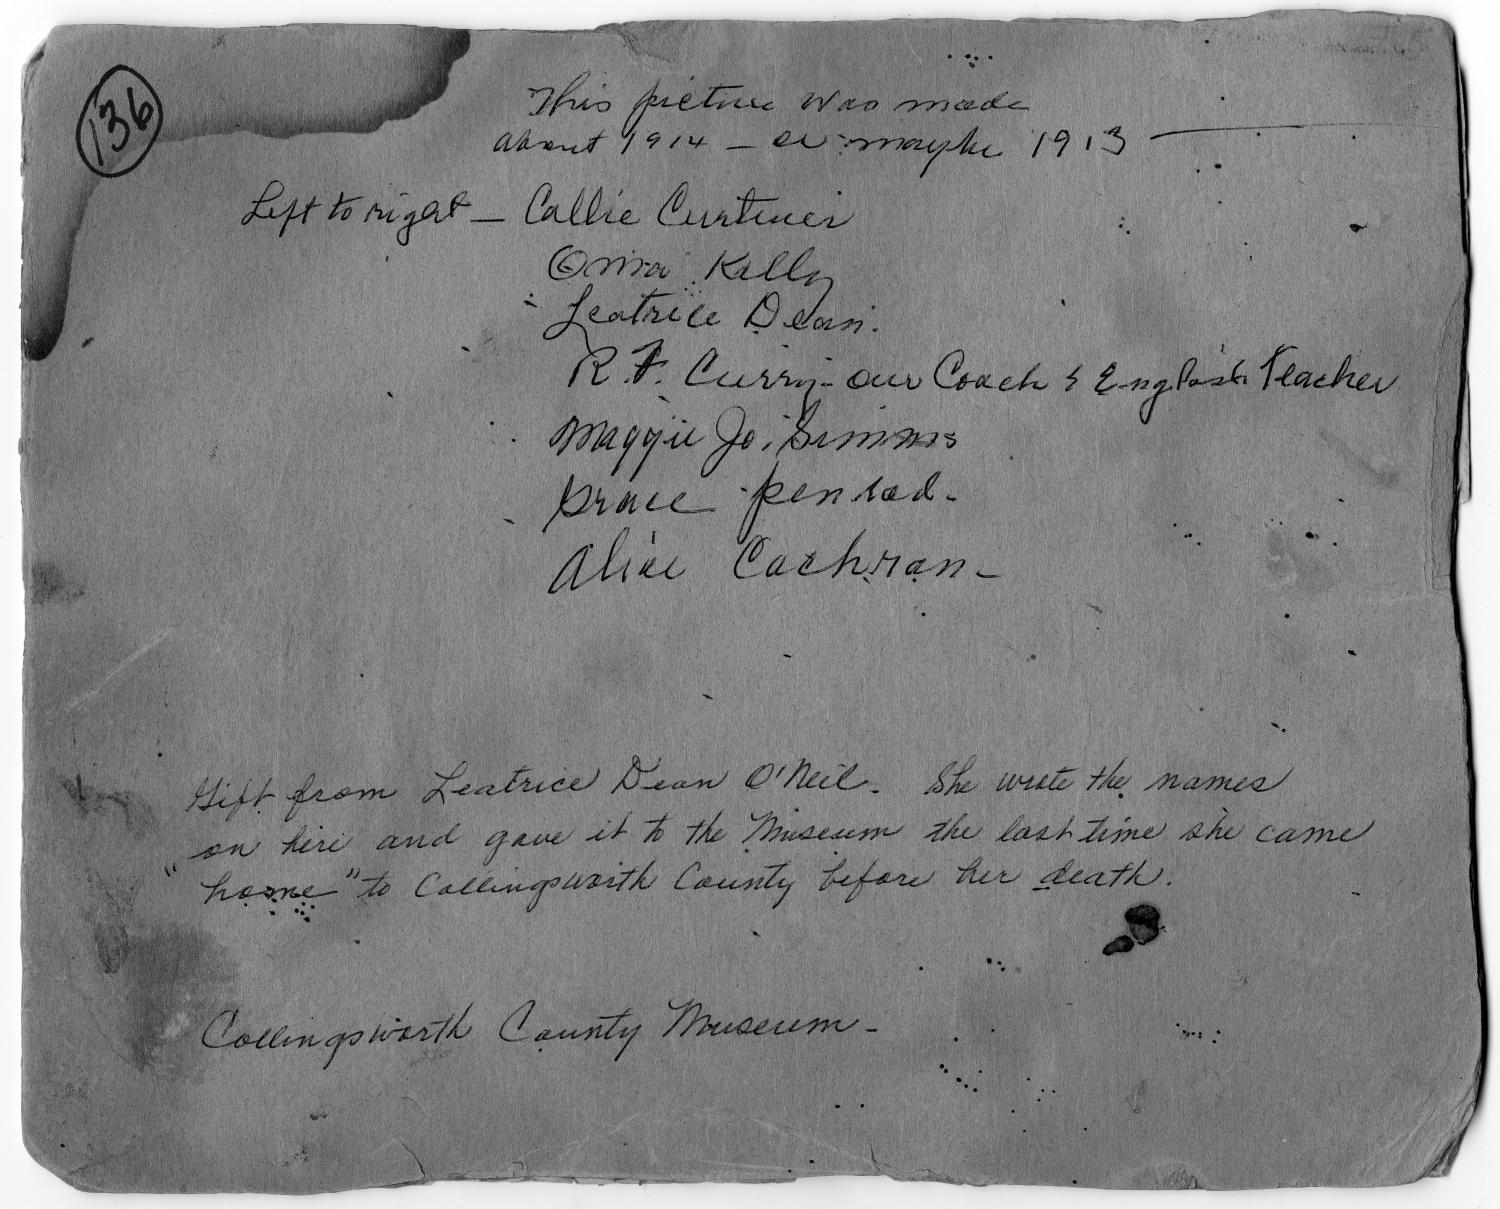 136
This picture was made
about 1914 — or maybe 1913 —
Left to right — Callie Curtner
Oma Kelly
Leatrice Dean.
R.F. Curry - our Coach & English Teacher
Maggie Jo. Simms
Grace penrod -
Alice Cochran -
Gift from Leatrice Dean O'Neil. She wrote the names
on here and gave it to the Museum the last time she came
"home" to Collingsworth County before her death.
Collingsworth County Museum -